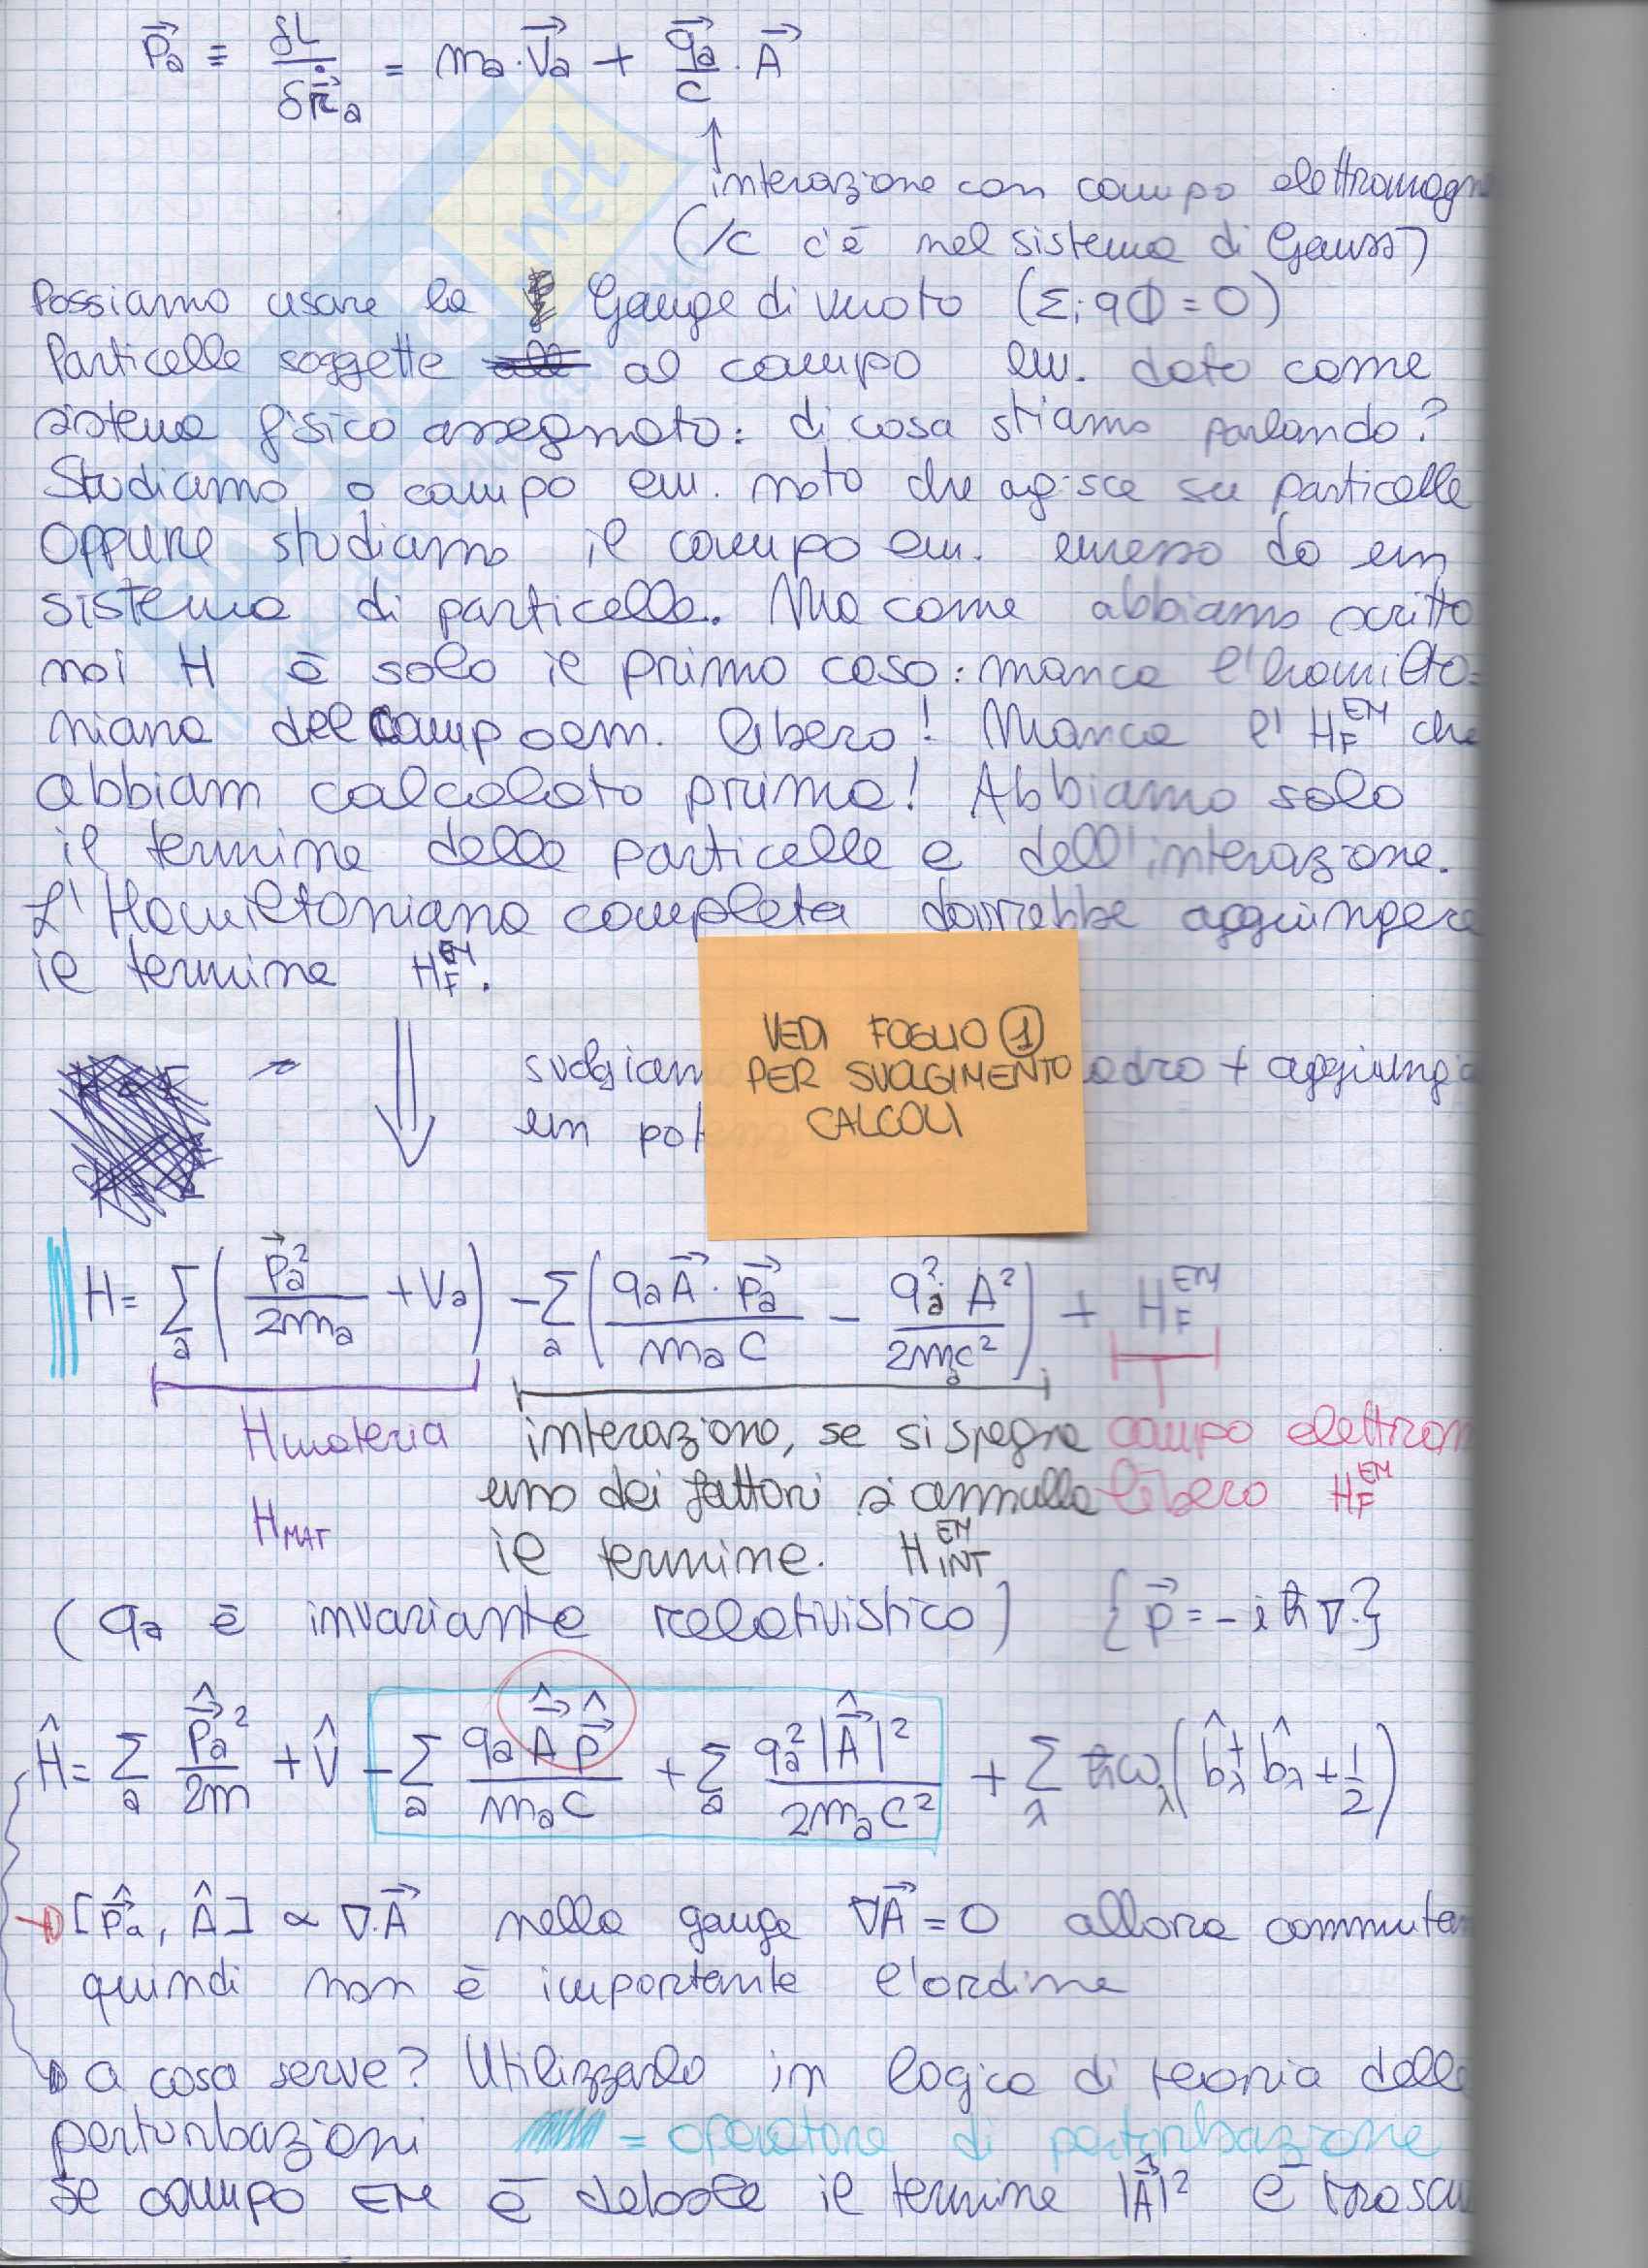 p⃗a = δL/δṙ⃗a = ma·v⃗a + q⃗a/c · A⃗
interazione con campo elettromagn
(/c c'è nel sistema di Gauss)
Possiamo usare la Gauge di vuoto (Σi qΦ = 0)
Particelle soggette al campo em. dato come
sistema fisico assegnato: di cosa stiamo parlando?
Studiamo o campo em. noto che agisce su particelle
oppure studiamo il campo em. emesso da un
sistema di particelle. Ma come abbiamo scritto
noi H è solo il primo caso: manca l'hamilto-
niana del campo em. libero! Manca l' H_F^EM che
abbiam calcolato prima! Abbiamo solo
il termine delle particelle e dell'interazione.
L'Hamiltoniana completa dovrebbe aggiungere
il termine H_F^EM.
VEDI FOGLIO ①
PER SVOLGIMENTO
CALCOLI
svolgiam adro + aggiungia
un pot
H = Σa ( p⃗a²/2ma + Va ) - Σa ( qa A⃗ · p⃗a / ma c - qa² A² / 2ma c² ) + H_F^EM
Hmateria interazione, se si spegne campo elettrom
uno dei fattori si annulla libero H_F^EM
HMAT il termine. H_INT^EM
(qa è invariante relativistico) { p⃗ = -iħ∇· }
Ĥ = Σa p̂⃗a²/2m + V̂ - Σa qa Â⃗ p̂⃗ / ma c + Σa qa² |Â⃗|² / 2ma c² + Σλ ħωλ ( b̂λ† b̂λ + 1/2 )
[p̂⃗a, Â] ∝ ∇·A⃗ nella gauge ∇A⃗ = 0 allora commuta
quindi non è importante l'ordine
a cosa serve? Utilizzarlo in logica di teoria delle
perturbazioni = operatore di perturbazione
se campo EM è debole il termine |A⃗|² è trascu